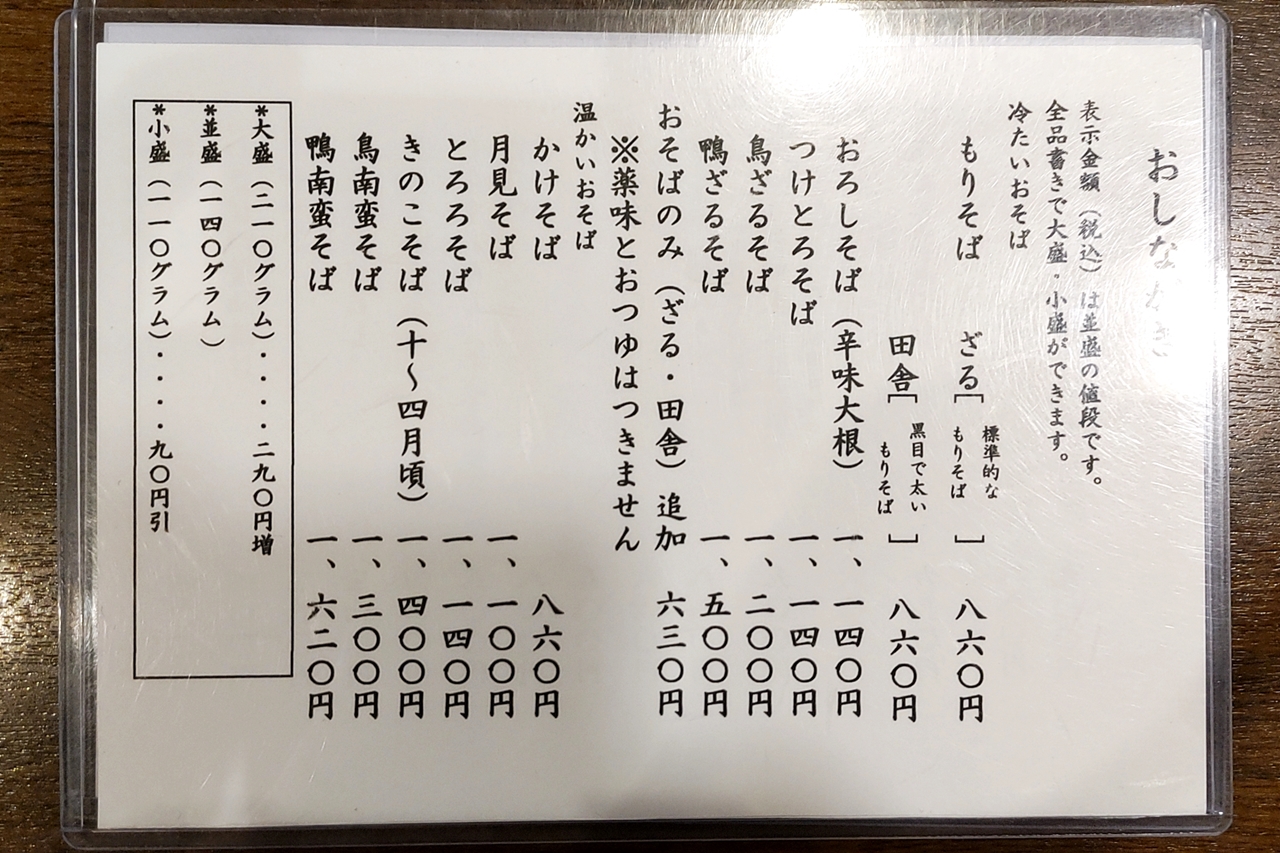 おしながき
表示金額（税込）は並盛の値段です。
全品書きで大盛・小盛ができます。
冷たいおそば
もりそば　ざる［標準的なもりそば］　八六〇円
田舎［黒目で太いもりそば］　八六〇円
おろしそば（辛味大根）　一、一四〇円
つけとろそば　一、一四〇円
鳥ざるそば　一、二〇〇円
鴨ざるそば　一、五〇〇円
おそばのみ（ざる・田舎）追加　六三〇円
※薬味とおつゆはつきません
温かいおそば
かけそば　八六〇円
月見そば　一、一〇〇円
とろろそば　一、一四〇円
きのこそば（十〜四月頃）　一、四〇〇円
鳥南蛮そば　一、三〇〇円
鴨南蛮そば　一、六二〇円
*大盛（二一〇グラム）・・・・二九〇円増
*並盛（一四〇グラム）
*小盛（一一〇グラム）・・・・九〇円引